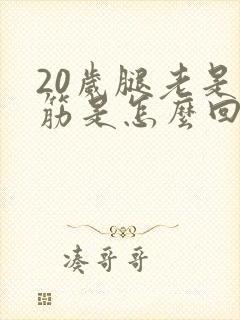 20歲腿老是
筋是怎麼回
凑哥哥